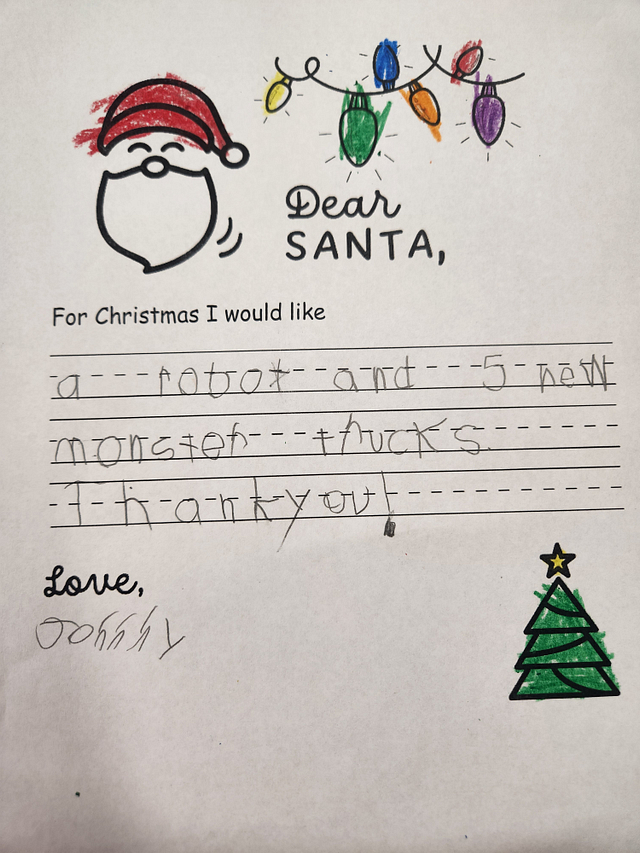 Dear
SANTA,
For Christmas I would like
a robot and 5 new
monster trucks.
Thank you!
Love,
Johnny